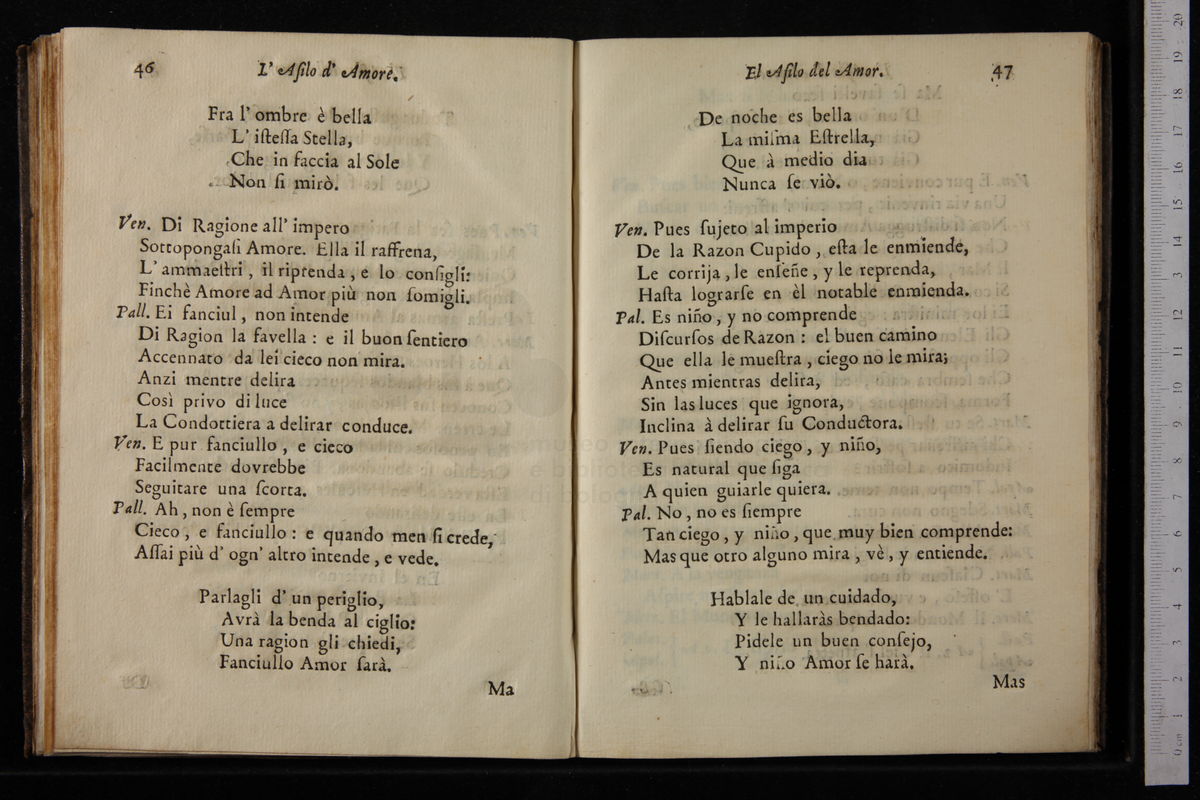 46 L' Aſilo d' Amore.
Fra l' ombre è bella
L' iſteſſa Stella,
Che in faccia al Sole
Non ſi mirò.
Ven. Di Ragione all' impero
Sottopongaſi Amore. Ella il raffrena,
L' ammaeſtri, il riprenda, e lo conſigli:
Finchè Amore ad Amor più non ſomigli.
Pall. Ei fanciul, non intende
Di Ragion la favella: e il buon ſentiero
Accennato da lei cieco non mira.
Anzi mentre delira
Così privo di luce
La Condottiera a delirar conduce.
Ven. E pur fanciullo, e cieco
Facilmente dovrebbe
Seguitare una ſcorta.
Pall. Ah, non è ſempre
Cieco, e fanciullo: e quando men ſi crede,
Aſſai più d' ogn' altro intende, e vede.
Parlagli d' un periglio,
Avrà la benda al ciglio:
Una ragion gli chiedi,
Fanciullo Amor ſarà.
Ma
El Aſilo del Amor. 47
De noche es bella
La miſma Eſtrella,
Que à medio dia
Nunca ſe viò.
Ven. Pues ſujeto al imperio
De la Razon Cupido, eſta le enmiende,
Le corrija, le enſeñe, y le reprenda,
Haſta lograrſe en èl notable enmienda.
Pal. Es niño, y no comprende
Diſcurſos de Razon: el buen camino
Que ella le mueſtra, ciego no le mira;
Antes mientras delira,
Sin las luces que ignora,
Inclina à delirar ſu Conductora.
Ven. Pues ſiendo ciego, y niño,
Es natural que ſiga
A quien guiarle quiera.
Pal. No, no es ſiempre
Tan ciego, y niño, que muy bien comprende:
Mas que otro alguno mira, vè, y entiende.
Hablale de un cuidado,
Y le hallaràs bendado:
Pidele un buen conſejo,
Y niño Amor ſe harà.
Mas